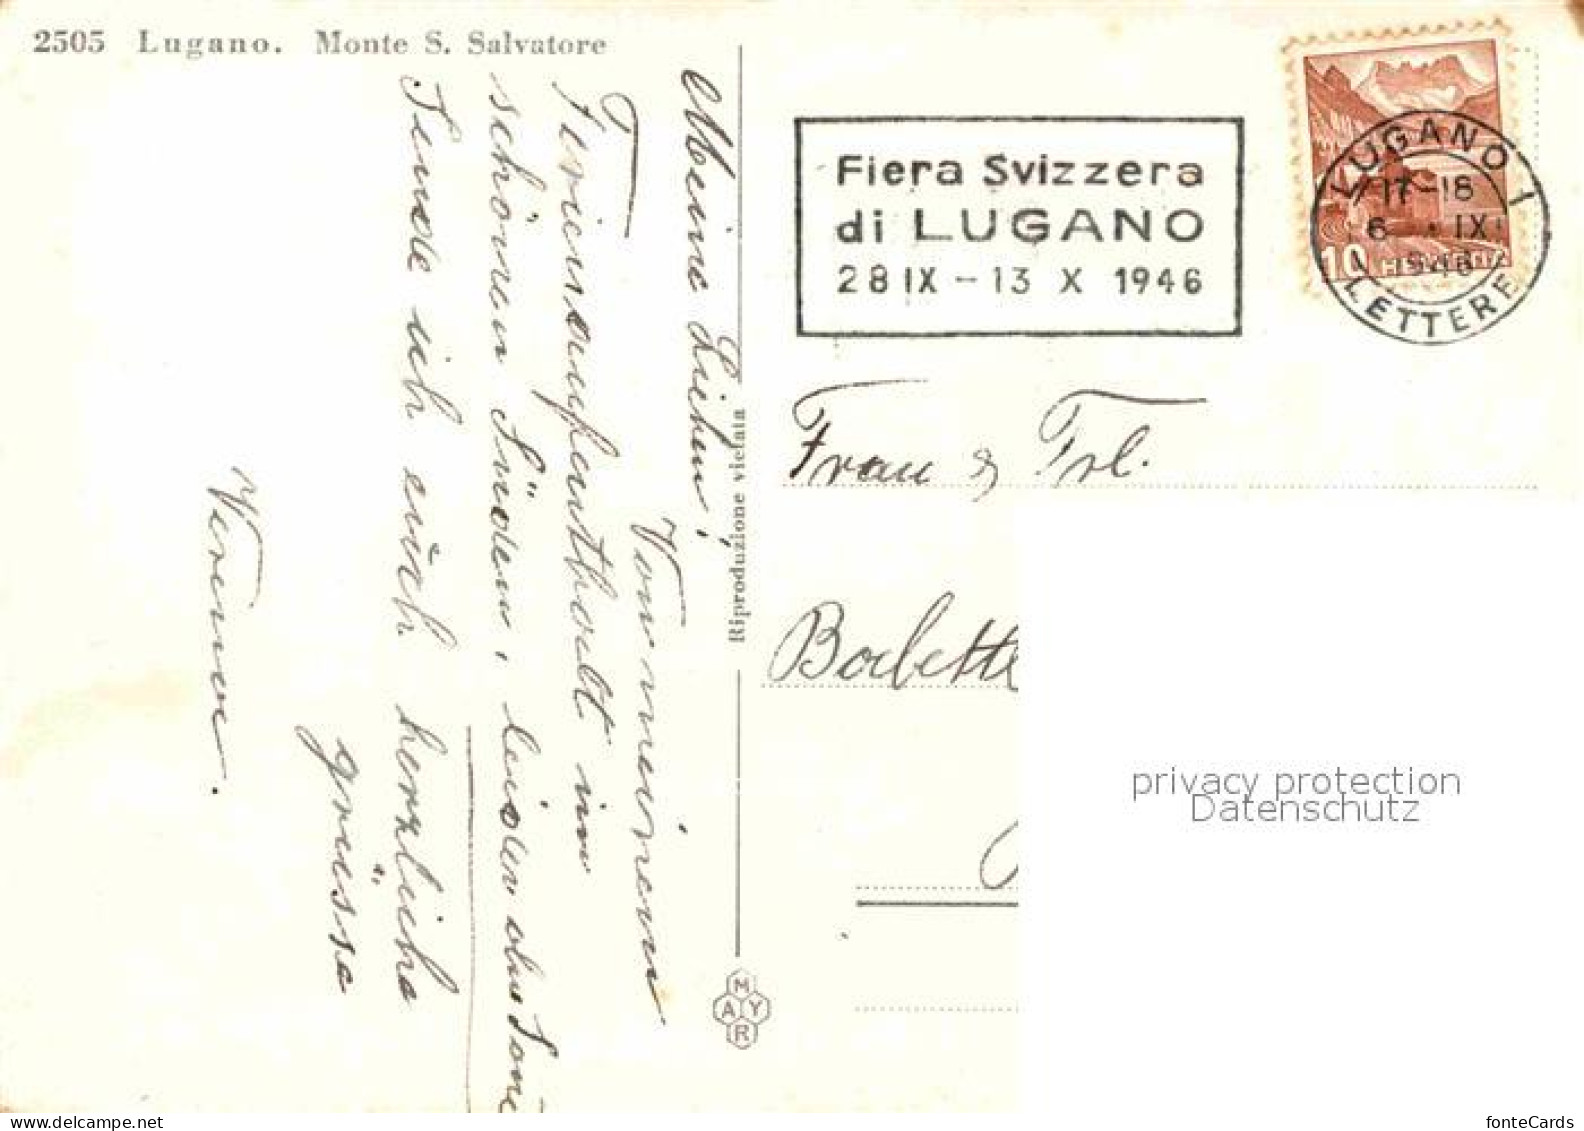 2505 Lugano. Monte S. Salvatore
Meine Lieben!
Von meinem
Ferienaufenthalt im
schönen Süden, leider ohne Sonne
Sende ich euch herzliche
grüsse
Verena.
Riproduzione vietata
MAYR
Fiera Svizzera
di LUGANO
28 IX - 13 X 1946
LUGANO 1
17-18
6 . IX
1946
LETTERE
10 HELVETIA
Frau & Frl.
privacy protection
Datenschutz
fonteCards